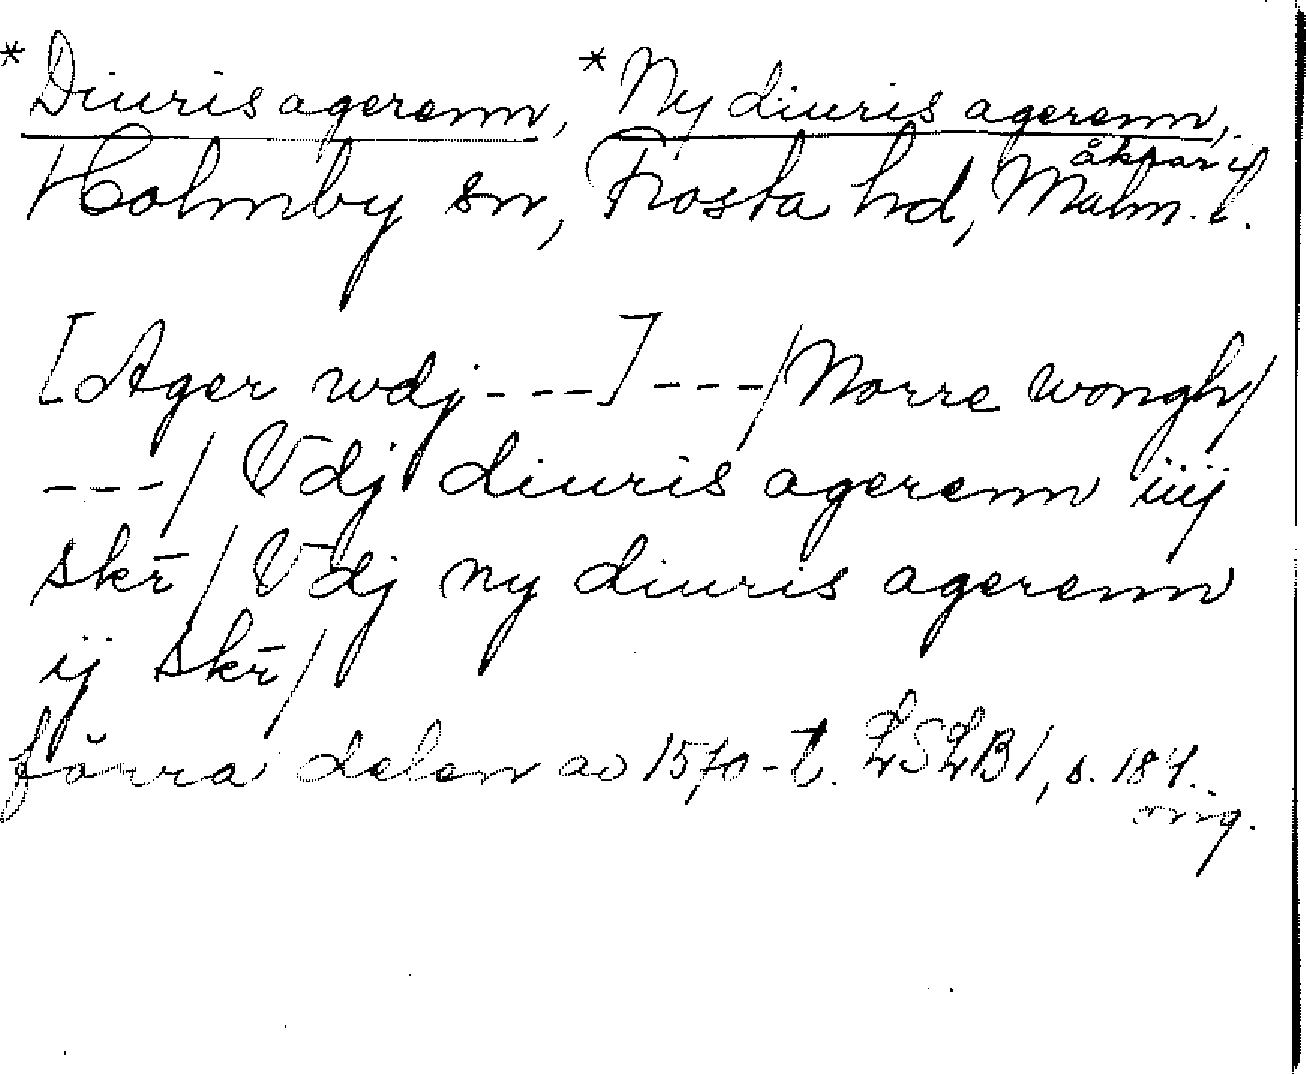 *Diuris agerenn, *Ny diuris agerenn,
åkrar i
Holmby sn, Frosta hd, Malm. l.
[Ager wdj---]---/Norre wongh/
---/ Vdj diuris agerenn iiij
skr̄/ Vdj ny diuris agerenn
ij skr̄/
förra delen av 1570-t. LSLB1, s. 184.
orig.